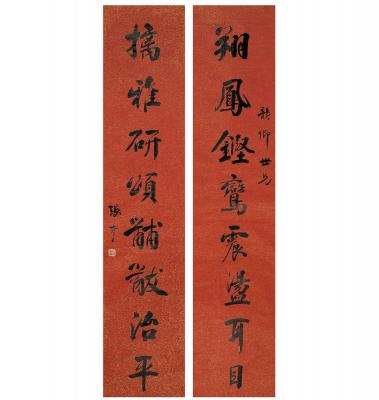 翔鳳鏗鸞震盪耳目
仰世兄
摛雅研頌黼黻治平
張謇